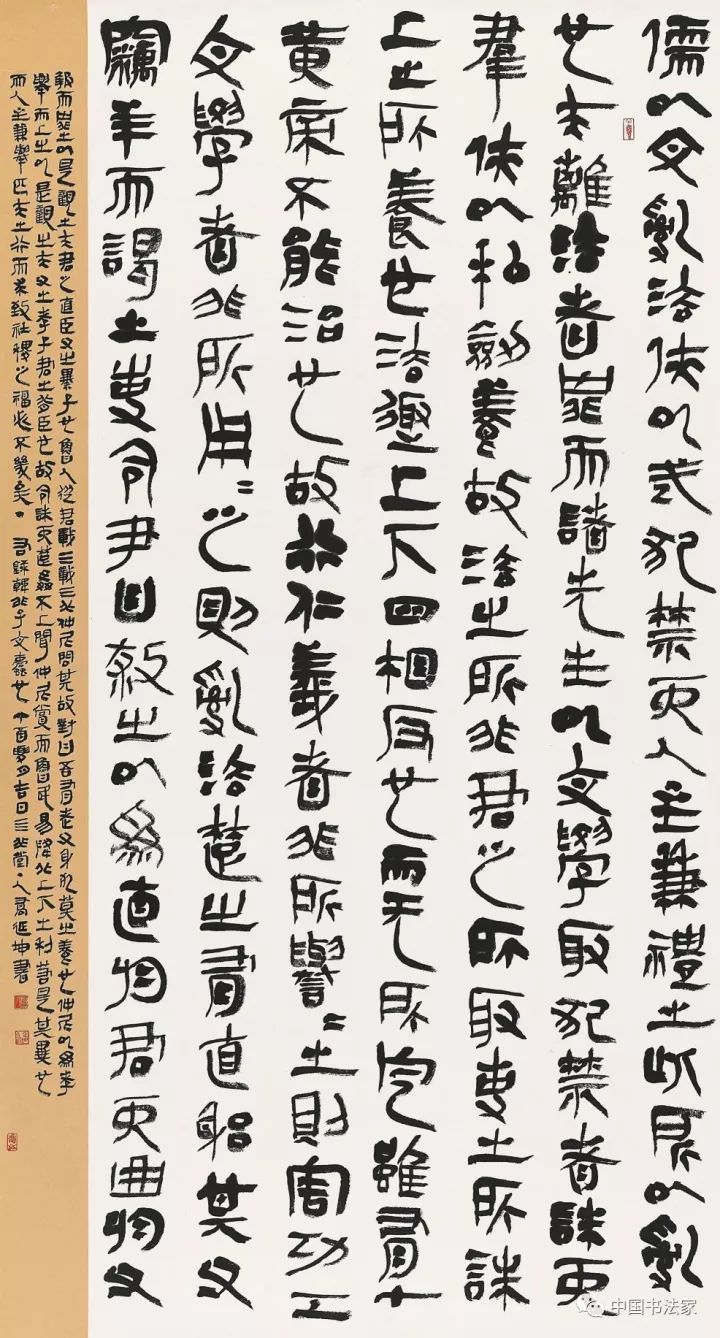 儒以文亂法俠以武犯禁而人主兼禮之此所以亂
也夫離法者罪而諸先生以文學取犯禁者誅而
羣俠以私劍養故法之所非君之所取吏之所誅
上之所養也法趣上下四相反也而无所定雖有十
黄帝不能治也故行仁義者非所譽〻之則害功工
文學者非所用〻之則亂法楚之有直躬其父
竊羊而謁之吏令尹曰殺之以爲直於君而曲於父
報而罪之以是觀之夫君之直臣父之暴子也魯人從君戰三戰三北仲尼問其故對曰吾有老父身死莫之養也仲尼以爲孝
舉而上之以是觀之夫父之孝子君之背臣也故令誅而楚姦不上聞仲尼賞而魯民易降北上下之利若是其異也
而人主兼舉匹夫之行而求致社稷之福必不幾矣 右録韓非子五蠹也 吉日 坤書
中国书法家